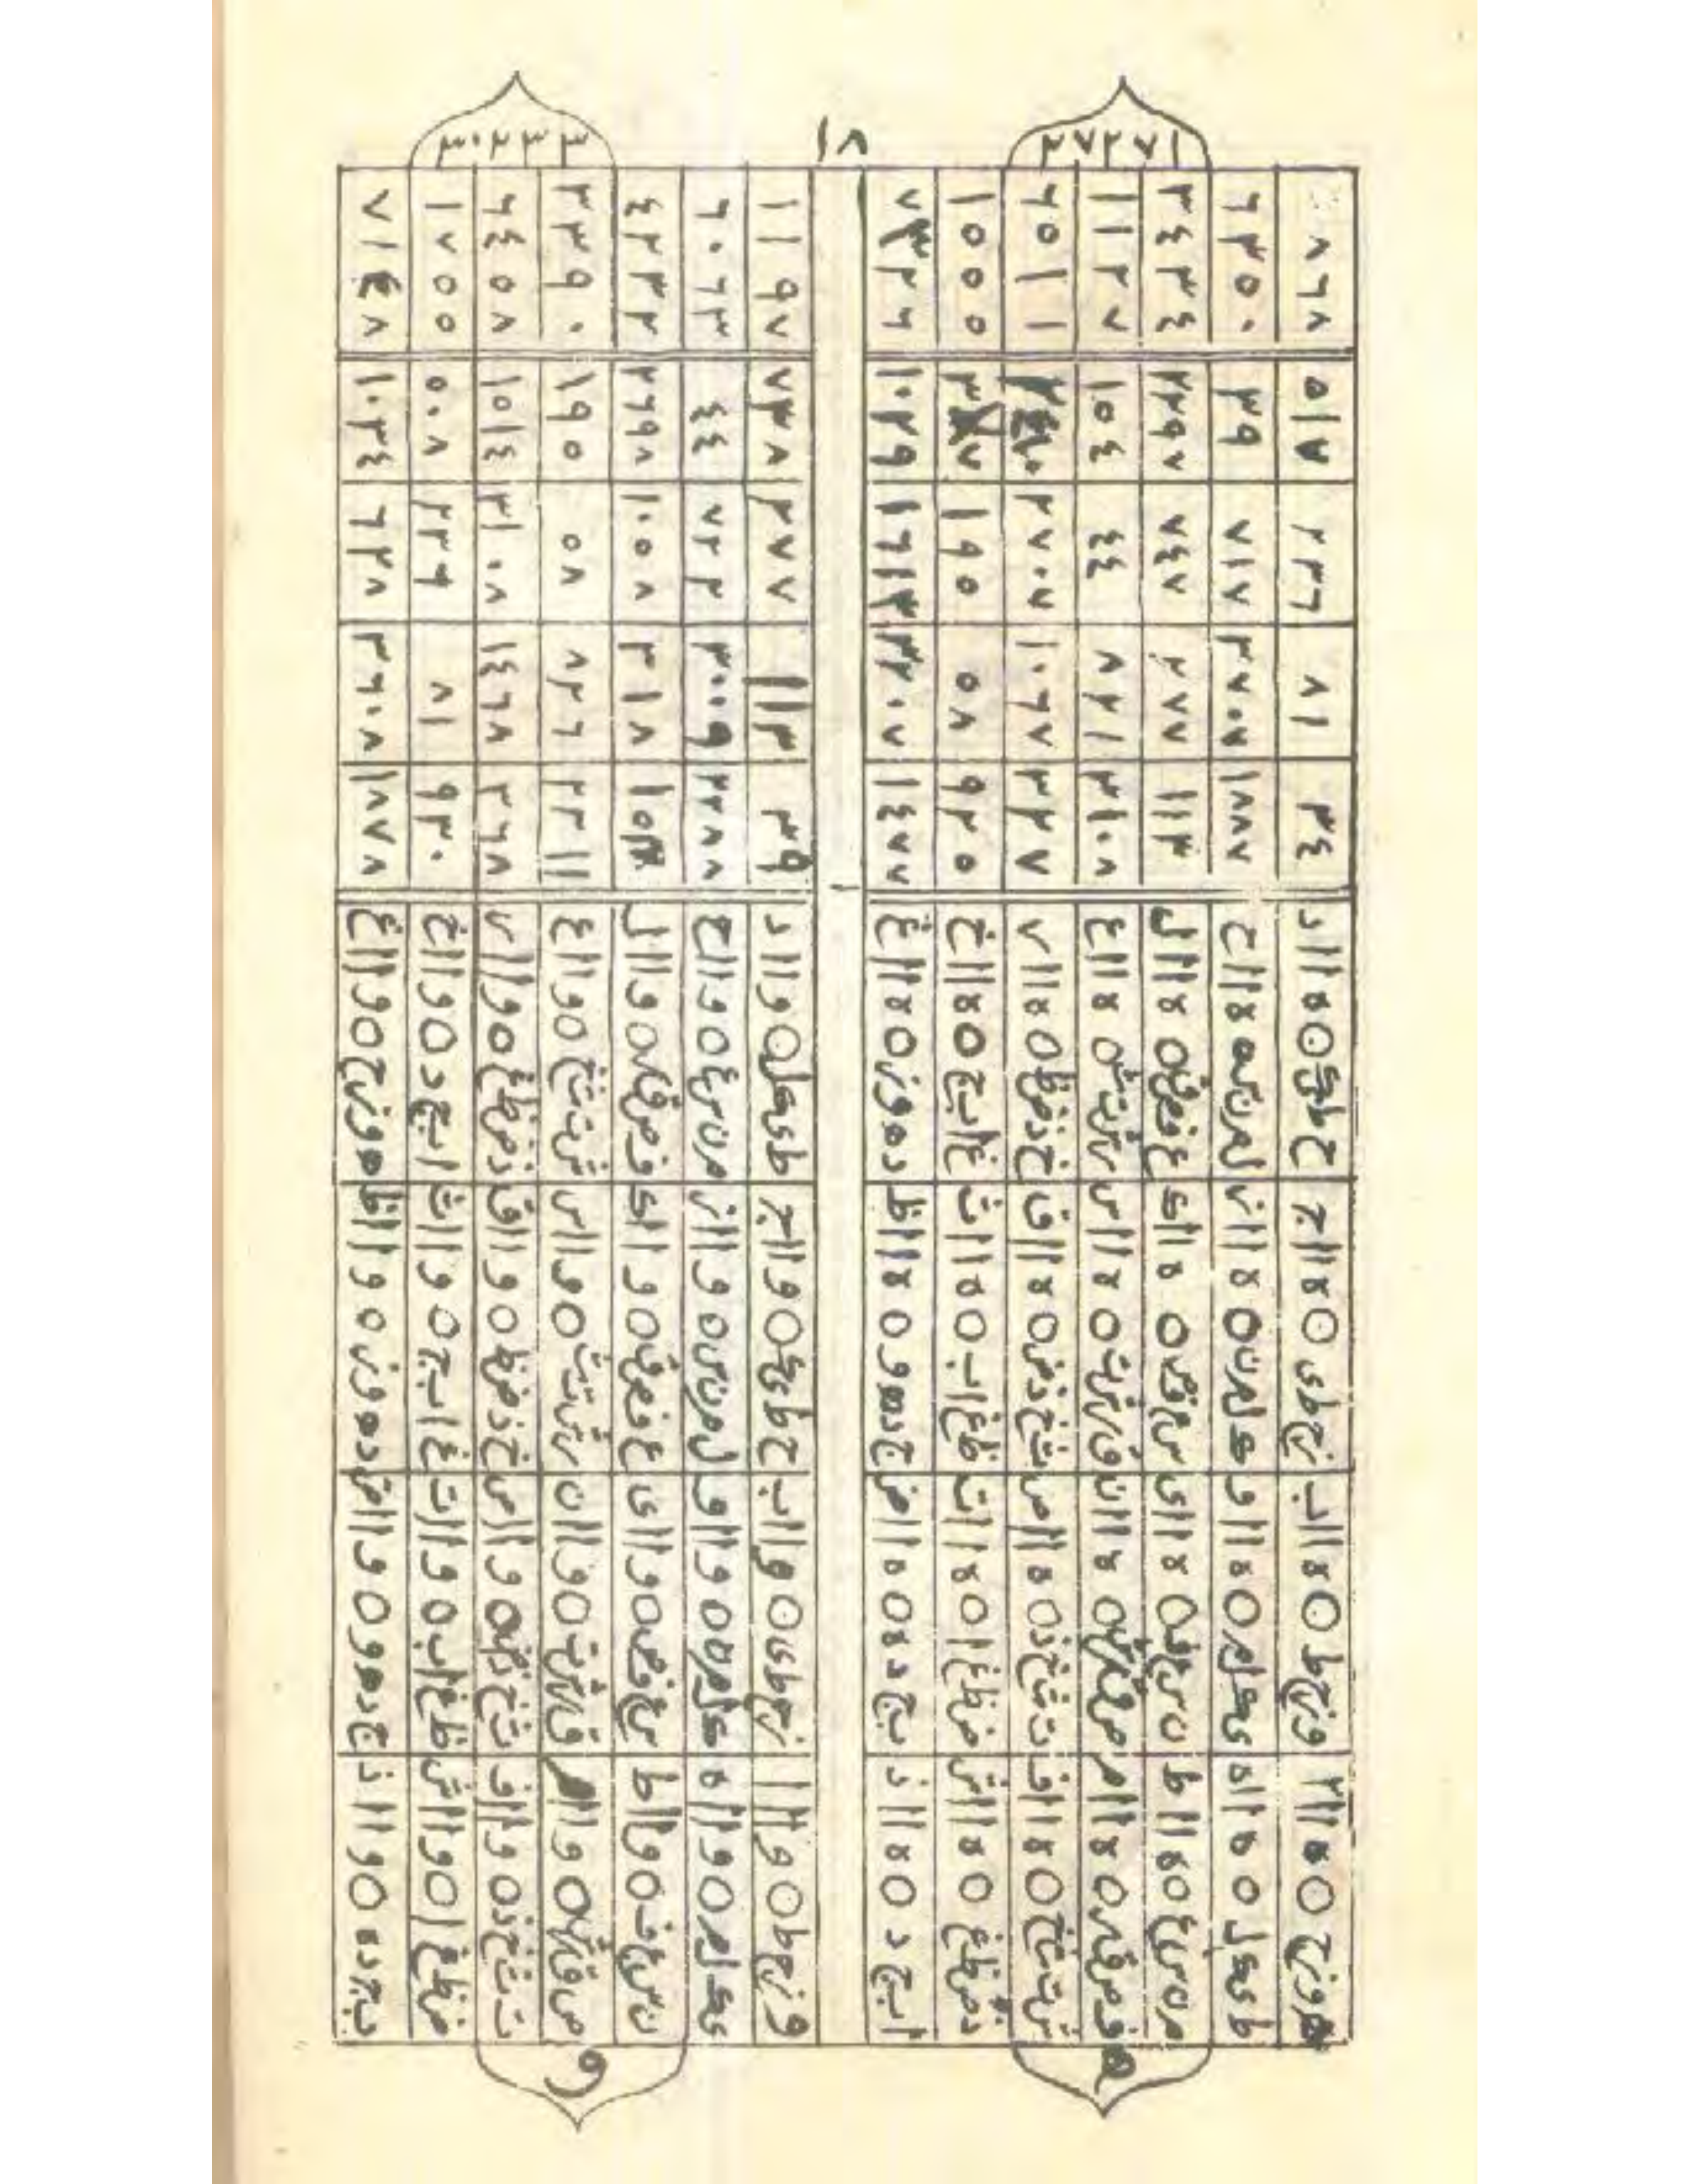 ه
هوزح ٥ ه اا ا وزحط ٥ ه اا ب زحطى ٥ ه اا ج حطيك ٥ ه اا د ٣٤ ٨١ ٢٢٦ ٥١٧ ٨٦٨
طيكل ٥ ه اا ه يكلم ٥ ه اا و كلمن ٥ ه اا ز لمنس ٥ ه اا ح ١٨٨٧ ٢٧٠٧ ٧١٧ ٣٩ ٦٣٥٠
منسع ٥ ه اا ط نسعف ٥ ه اا ى سعفص ٥ ه اا ك عفصق ٥ ه اا ل ١١٣ ٢٧٧ ٧٤٧ ٢٢٩٧ ٣٤٣٤
فصقر ٥ ه اا م صقرش ٥ ه اا ن قرشت ٥ ه اا س رشتث ٥ ه اا ع ٢١٠٨ ٨٢١ ٤٤ ١٥٤ ١١٢٧
شتثخ ٥ ه اا ف تثخذ ٥ ه اا ص ثخذض ٥ ه اا ق خذضظ ٥ ه اا ر ٢٢٧ ١٠٦٧ ٢٧٠٧ ٦٥١١
ذضظغ ٥ ه اا ش ضظغا ٥ ه اا ت ظغاب ٥ ه اا ث غابج ٥ ه اا خ ٩٢٥ ٥٨ ١٩٥ ١٥٥٥
ابجد ٥ ه اا ذ بجده ٥ ه اا ض جدهو ٥ ه اا ظ دهوز ٥ ه اا غ ١٤٧٧ ٢٢٠٧ ١٦١٣ ١٠٢٩ ٧٣٢٦
١٨
و
وزحط ٥ و اا ا زحطى ٥ و اا ب حطيك ٥ و اا ج طيكل ٥ و اا د ٣٩ ١١٣ ٢٧٧ ٧٣٨ ١١٩٧
يكلم ٥ و اا ه كلمن ٥ و اا و لمنس ٥ و اا ز منسع ٥ و اا ح ٢٢٨٨ ٣٠٠٩ ٧٢٢ ٤٤ ٦٠٦٣
نسعف ٥ و اا ط سعفص ٥ و اا ى عفصق ٥ و اا ك فصقر ٥ و اا ل ٢١٨ ١٠٥٨ ٢٦٩٨ ٤٢٣٢
صقرش ٥ و اا م قرشت ٥ و اا ن رشتث ٥ و اا س شتثخ ٥ و اا ع ٢٢١١ ٨٢٦ ٥٨ ١٩٥ ٣٢٩٠
تثخذ ٥ و اا ف ثخذض ٥ و اا ص خذضظ ٥ و اا ق ذضظغ ٥ و اا ر ٢٦٨ ١٤٦٨ ٣١٠٨ ١٥١٤ ٦٤٥٨
ضظغا ٥ و اا ش ظغاب ٥ و اا ت غابج ٥ و اا ث ابجد ٥ و اا خ ٩٣٠ ٨١ ٢٢٩ ٥٠٨ ١٧٥٥
بجده ٥ و اا ذ جدهو ٥ و اا ض دهوز ٥ و اا ظ هوزح ٥ و اا غ ١٨٧٨ ٢٦٠٨ ٦٢٨ ١٠٣٤ ٧١٤٨